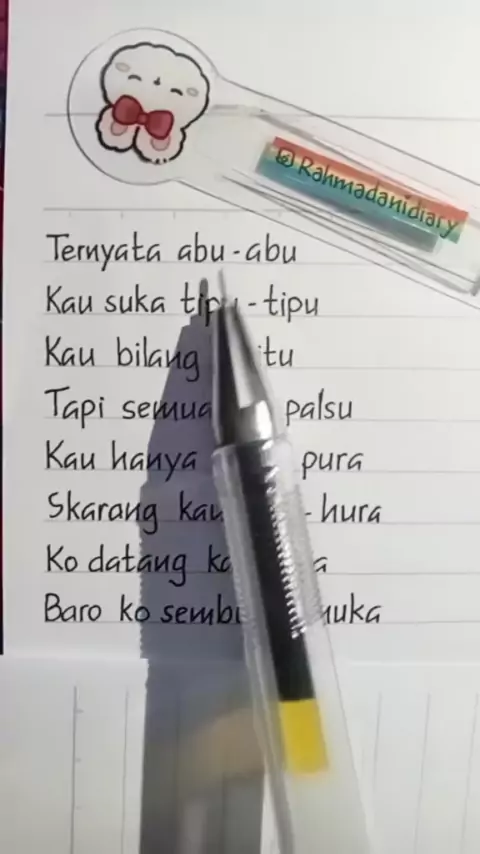 @Rahmadanidiary
Ternyata abu-abu
Kau suka tipu-tipu
Kau bilang
Tapi semua palsu
Kau hanya pura
Skarang kau - hura
Ko datang
Baro ko